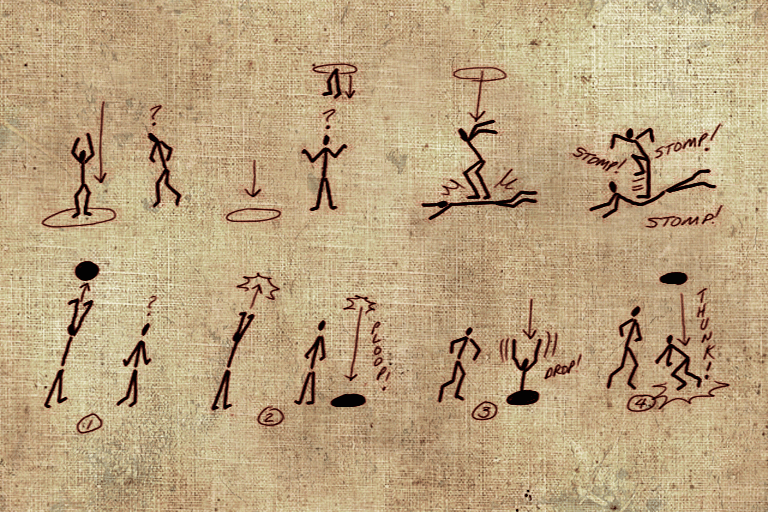 ?
?
STOMP!
STOMP!
STOMP!
?
PLOOP!
DROP!
THUNK!
1
2
3
4